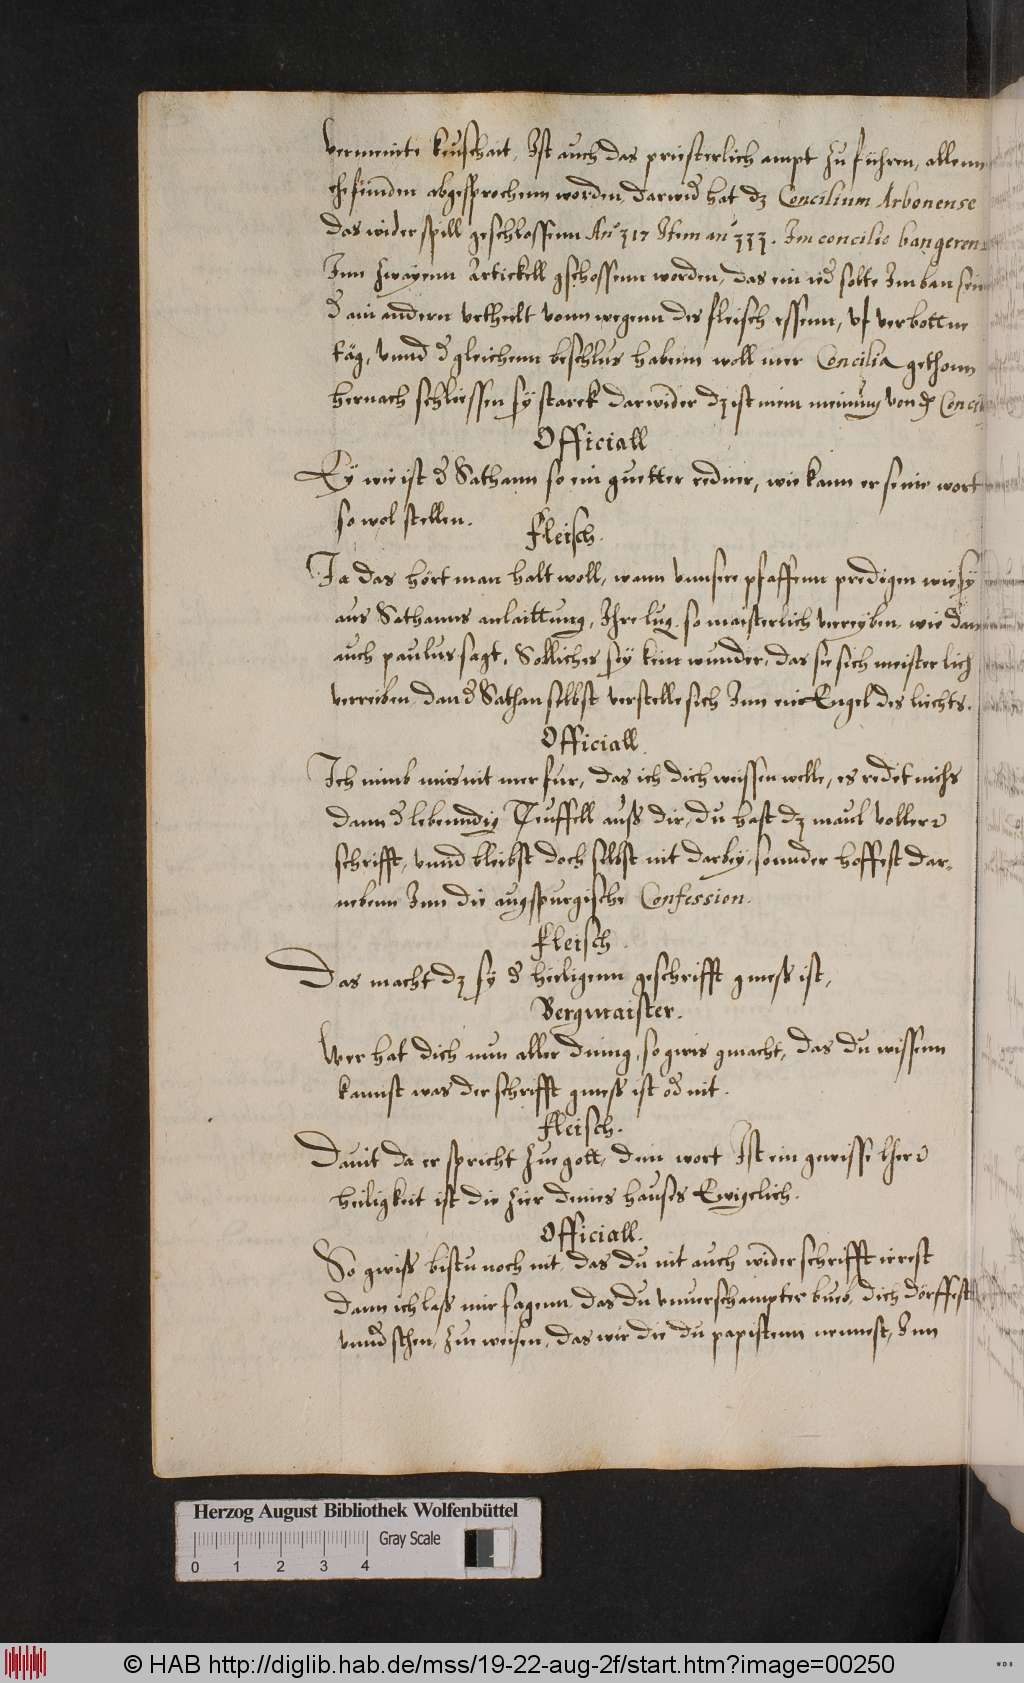 vermeinte keuschait, Ist auch das priesterlich ampt zu führen, allenn
ehefünden abgesprochenn worden, darwid hat dz Concilium Arbonense
das widerspill geschlossenn An 317 Item an 333. Im concilio bangeren
Inn zwayenn Artickell gschossenn worden, das ein ied solte Im ban sein
d ain andern vrtheilt vonn wegenn des fleisch essenn, vf verbottne
täg, vnnd d gleichenn beschlus habenn woll mer Concilia gethonn
hernach schliessen sy starck darwider dz ist mein meinung von d Concil
Officiall
Ey wie ist d Sathann so ein guetter redner, wie kann er seine wort
so wol stellen.
Fleisch.
Ja das hört man halt woll, wann vnnsere pfaffenn predigen wie sy
aus Sathanns anlaittung, Ihre lug so maisterlich verreyben, wie dan
auch paulus sagt, Solliches sey kein wunder, das sie sich meisterlich
verreiben, dan d Sathan selbst verstelle sich Inn ein Engel des liechts.
Officiall.
Ich nimb mirs nit mer fur, das ich dich weissen welle, es redet nichs
dann d lebenndig Teuffell auß dir, du hast dz maul voller
schrifft, vnnd bleibst doch selbst nit darbey, sonnder hoffest dar-
nebenn Inn die augspurgische Confession.
Fleisch.
Das macht dz sy d heiligenn geschrifft gmeß ist,
Bergmaister.
Wer hat dich nun aller dinng, so gwis gmacht, das du wissenn
kannst was der schrifft gmeß ist od nit.
Fleisch.
Dauit da er spricht zue gott, dein wort Ist ein gewisse lher
heiligkeit ist die zier deines haußs Ewigclich.
Officiall.
So gwiß bistu noch nit, das du nit auch wider schrifft irrest
dann ich laß mir sagenn, das du vnuerschampter bueb, dich dörffest
vnnd stehen, zue weisen, das wir die du papistenn nennest, Inn
Herzog August Bibliothek Wolfenbüttel
Gray Scale
0 1 2 3 4
© HAB http://diglib.hab.de/mss/19-22-aug-2f/start.htm?image=00250